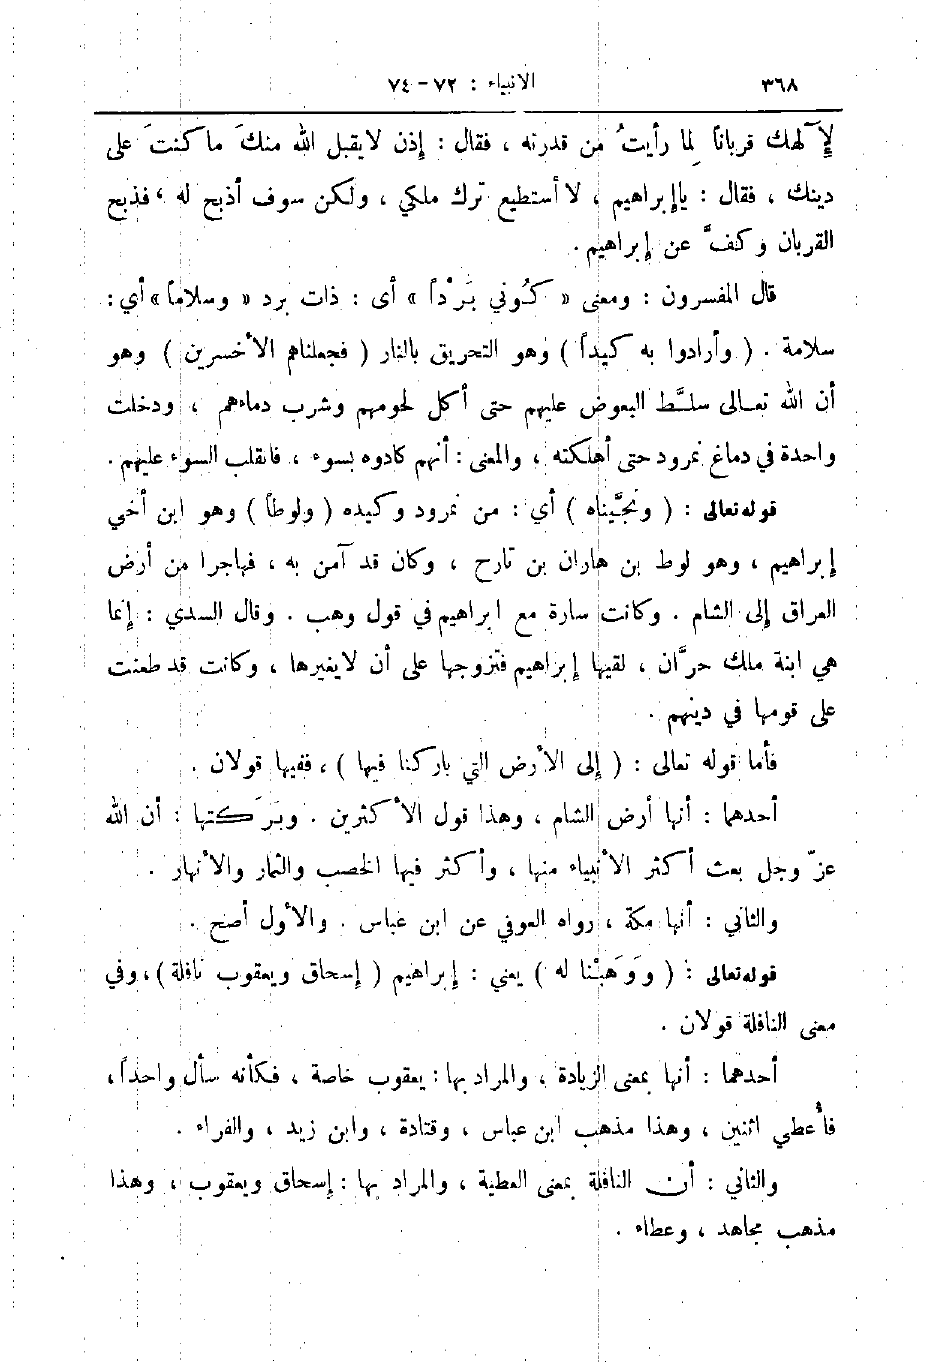 ٣٦٨ الانبياء : ٧٢ – ٧٤
لإِلٓهك قرباناً لِما رأيتُ من قدرته ، فقال : إذن لايقبل الله منكَ ما كنتَ على
دينك ، فقال : ياإبراهيم ، لا أستطيع ترك ملكي ، ولكن سوف أذبح له ، فذبح
القربان وكفَّ عن إبراهيم .
قال المفسرون : ومعنى « كُوني بَرْداً » أى : ذات برد « وسلاماً » أي :
سلامة . ( وأرادوا به كيداً ) وهو التحريق بالنار ( فجعلناهم الأخسرين ) وهو
أن الله تعالى سلَّط البعوض عليهم حتى أكل لحومهم وشرب دماءهم ، ودخلت
واحدة في دماغ نمرود حتى أهلكته ، والمعنى : أنهم كادوه بسوء ، فانقلب السوء عليهم .
قوله تعالى : ( ونجَّيناه ) أي : من نمرود وكيده ( ولوطاً ) وهو ابن أخي
إبراهيم ، وهو لوط بن هاران بن تارح ، وكان قد آمن به ، فهاجرا من أرض
العراق إلى الشام . وكانت سارة مع ابراهيم في قول وهب . وقال السدي : إنما
هي ابنة ملك حرَّان ، لقيها إبراهيم فتزوجها على أن لايغيرها ، وكانت قد طعنت
على قومها في دينهم .
فأما قوله تعالى : ( إلى الأرض التي باركنا فيها ) ، ففيها قولان .
أحدهما : أنها أرض الشام ، وهذا قول الأكثرين . وبَرَكتها : أن الله
عزّ وجل بعث أكثر الأنبياء منها ، وأكثر فيها الخصب والثمار والأنهار .
والثاني : أنها مكة ، رواه العوفي عن ابن عباس . والأول أصح .
قوله تعالى : ( ووَهَبْنا له ) يعني : إبراهيم ( إسحاق ويعقوب نافلة ) ، وفي
معنى النافلة قولان .
أحدهما : أنها بمعنى الزيادة ، والمراد بها : يعقوب خاصة ، فكأنه سأل واحداً ،
فأُعطي اثنين ، وهذا مذهب ابن عباس ، وقتادة ، وابن زيد ، والفراء .
والثاني : أن النافلة بمعنى العطية ، والمراد بها : إسحاق ويعقوب ، وهذا
مذهب مجاهد ، وعطاء .